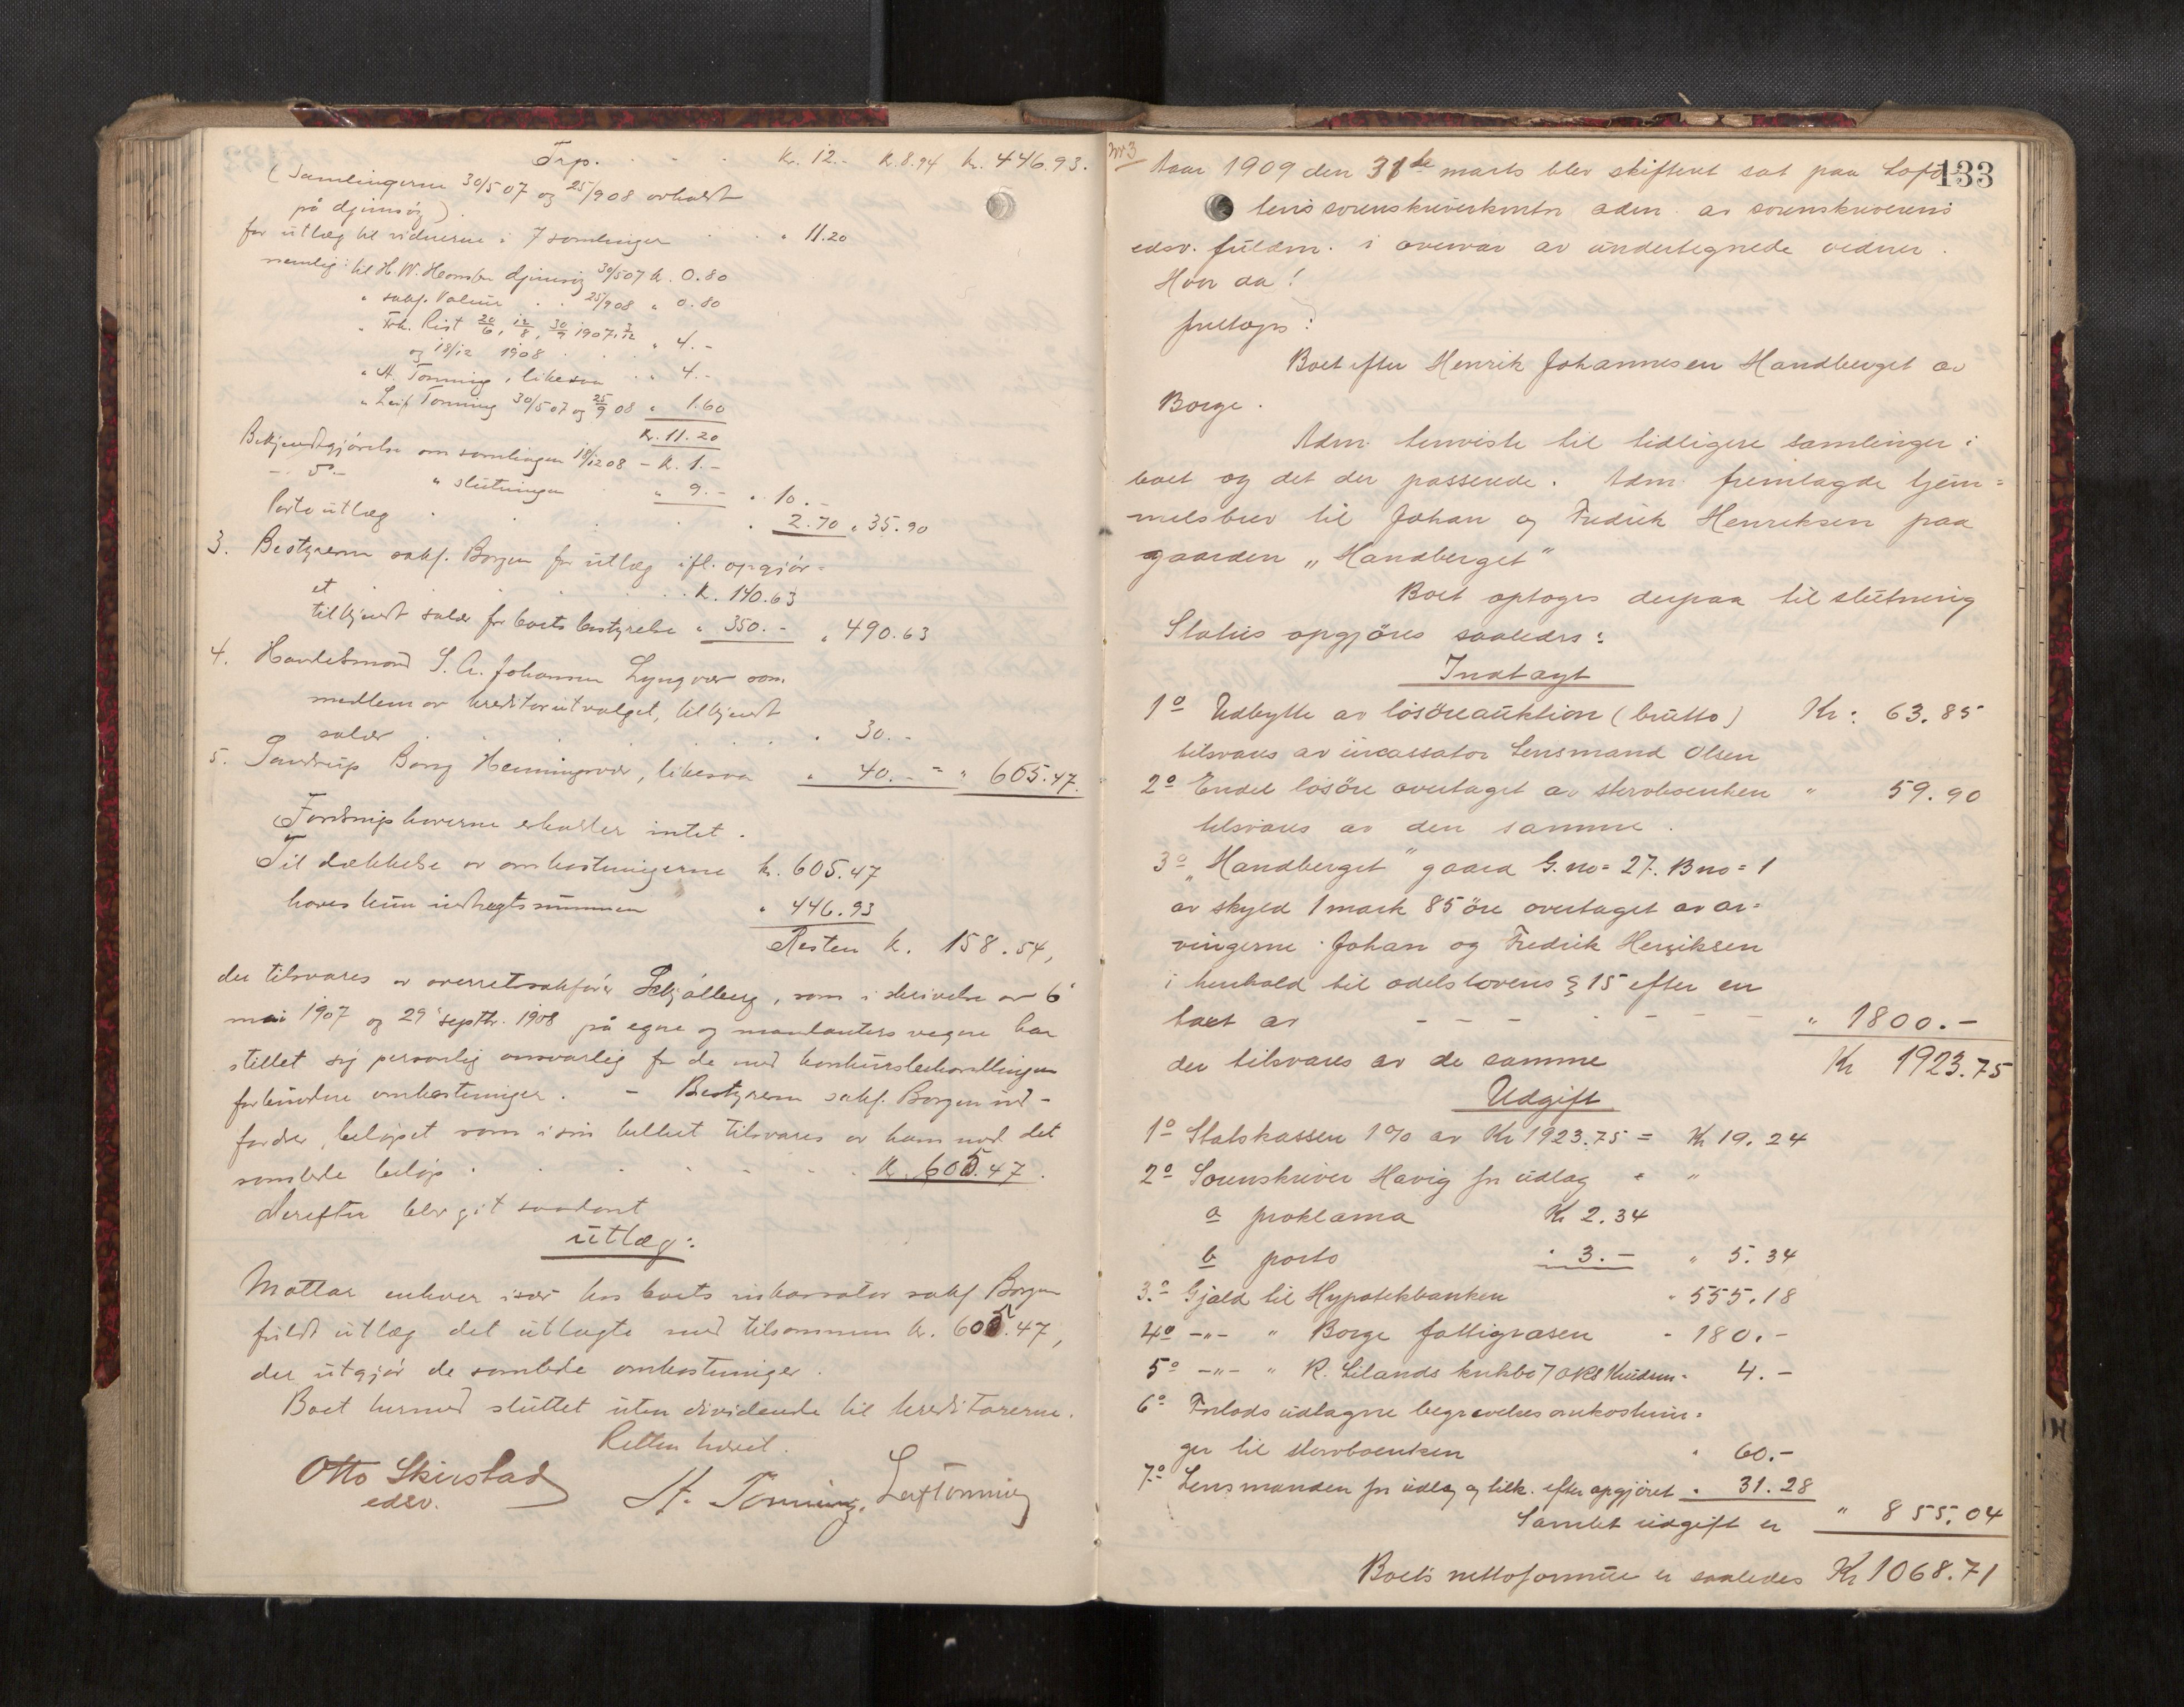 Trp. . . . Kr. 12.- Kr. 8.94 Kr. 446.93.
(Samlingerne 30/5 07 og 25/9 08 avholdt
på Gjimsøy).
for utlæg til vidnerne i 7 samlinger . . . " 11.20
nemlig: til H. W. Gjimsøy 30/5 07 kr. 0.80
" sakf. . . 25/9 08 " 0.80
" Frh. Rist 20/6, 12/8, 30/9 1907, 3/12
og 18/12 1908 . . . " 4.-
" A. Tonning, likesaa . . " 4.-
" Leif Tonning 30/5 07 og 25/9 08 " 1.60
Kr. 11.20
Bekjendtgjørelse om samlingen 18/12 08 - K. 1.-
- " - " slutningen " 9.- " 10.-
Porto utlæg . . . . " 2.70 " 35.90
3. Bestyreren sakf. Borgen for utlæg ifl. opgjør-
et . . . . K. 140.63
tilkjendt salær for boets bestyrelse " 350.- " 490.63
4. Handelsmand S. A. Johannsen Lyngvær som
medlem av kreditorutvalget, tilkjendt
salær . . . . . " 30.-
5. Borg Henningsvær, likesaa " 40.- = " 605.47.
Fordringshaverne erholder intet.
Til dækkelse av omkostningerne kr. 605.47
haves kun indtægtssummen " 446.93
Resten k. 158.54,
der tilsvares av overretssakfører Schjølberg, som i skrivelse av 6'
mai 1907 og 29' septbr. 1908 på egne og mandanters vegne har
stillet sig personlig ansvarlig for de med konkursbehandlingen
forbundne omkostninger. - Bestyreren sakf. Borgen ind-
fordrer beløpet som i sin helhet tilsvares av ham med det
samlede beløp . . . . . . . K. 605.47.
Derefter blev git saadant
utlæg:
Mottar enhver især hos boets inkassator sakf. Borgen
fuldt utlæg det utlagte med tilsammen kr. 605.47,
der utgjør de samlede omkostninger.
Boet hermed sluttet uten dividende til kreditorerne.
Retten hævet.
Otto Skirstad
edsv.
A. Tonning. Leif Tonning
No 3
133
Aar 1909 den 31te marts blev skifteret sat paa Lofo-
tens sorenskriverkontor adm. av sorenskriverens
edsv. fuldm. i overvær av undertegnede vidner.
Hvor da!
foretoges:
Boet efter Henrik Johannesen Handberget av
Borge.
Adm. henviste til tidligere samlinger i
boet og det der passerede. Adm. fremlagde hjem=
melsbrev til Johan og Fredrik Henriksen paa
gaarden „Handberget"
Boet optoges derpaa til slutning
Status opgjøres saaledes:
Indtægt
1o Udbytte av løsøreauktion (brutto) Kr: 63.85
tilsvares av incassator Lensmand Olsen
2o Endel løsøre overtaget av stervboenken " 59.90
tilsvares av den samme.
3o „Handberget" gaard G. no= 27. Bno= 1
av skyld 1 mark 85 øre overtaget av ar=
vingerne Johan og Fredrik Henriksen
i henhold til odelslovens § 15 efter en
taxt av - - - - - - - " 1800.-
der tilsvares av de samme Kr 1923.75
Udgift
1o Statskassen 1% av Kr 1923.75 = Kr 19.24
2o Sorenskriver Havig for udlæg " "
a proklama Kr 2.34
b porto " 3.- " 5.34
3.o Gjæld til Hypotekbanken " 555.18
4o -"- " Borge fattigvæsen " 180.-
5o -"- " R. Lilands enkebo 4.-
6o Forlods udlagne begravelsesomkostnin=
ger til stervboenken " 60.-
7.o Lensmanden for udlæg og tilk. efter opgjøret " 31.28
Samlet udgift er " 855.04
Boets nettoformue er saaledes Kr 1068.71